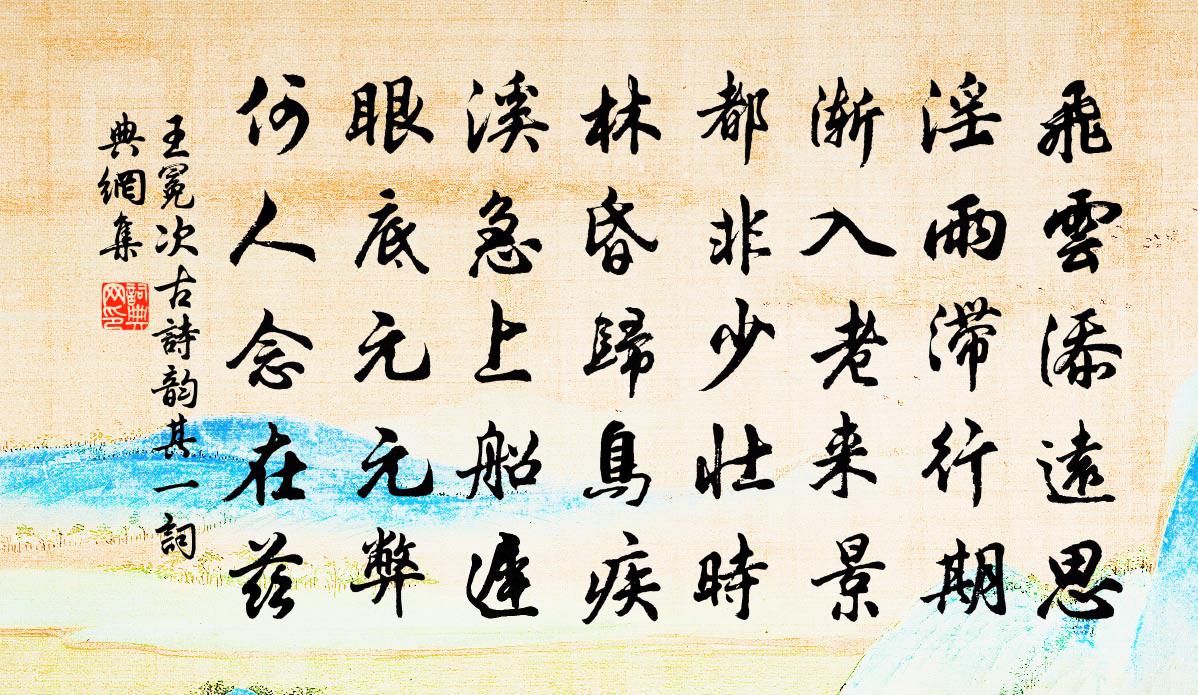 飛雲添遠思
淫雨滯行期
漸入老来景
都非少壯時
林昏歸鳥疾
溪急上船遲
眼底元元弊
何人念在茲
王冕次古詩韵其一詞
典網集
詞典網印